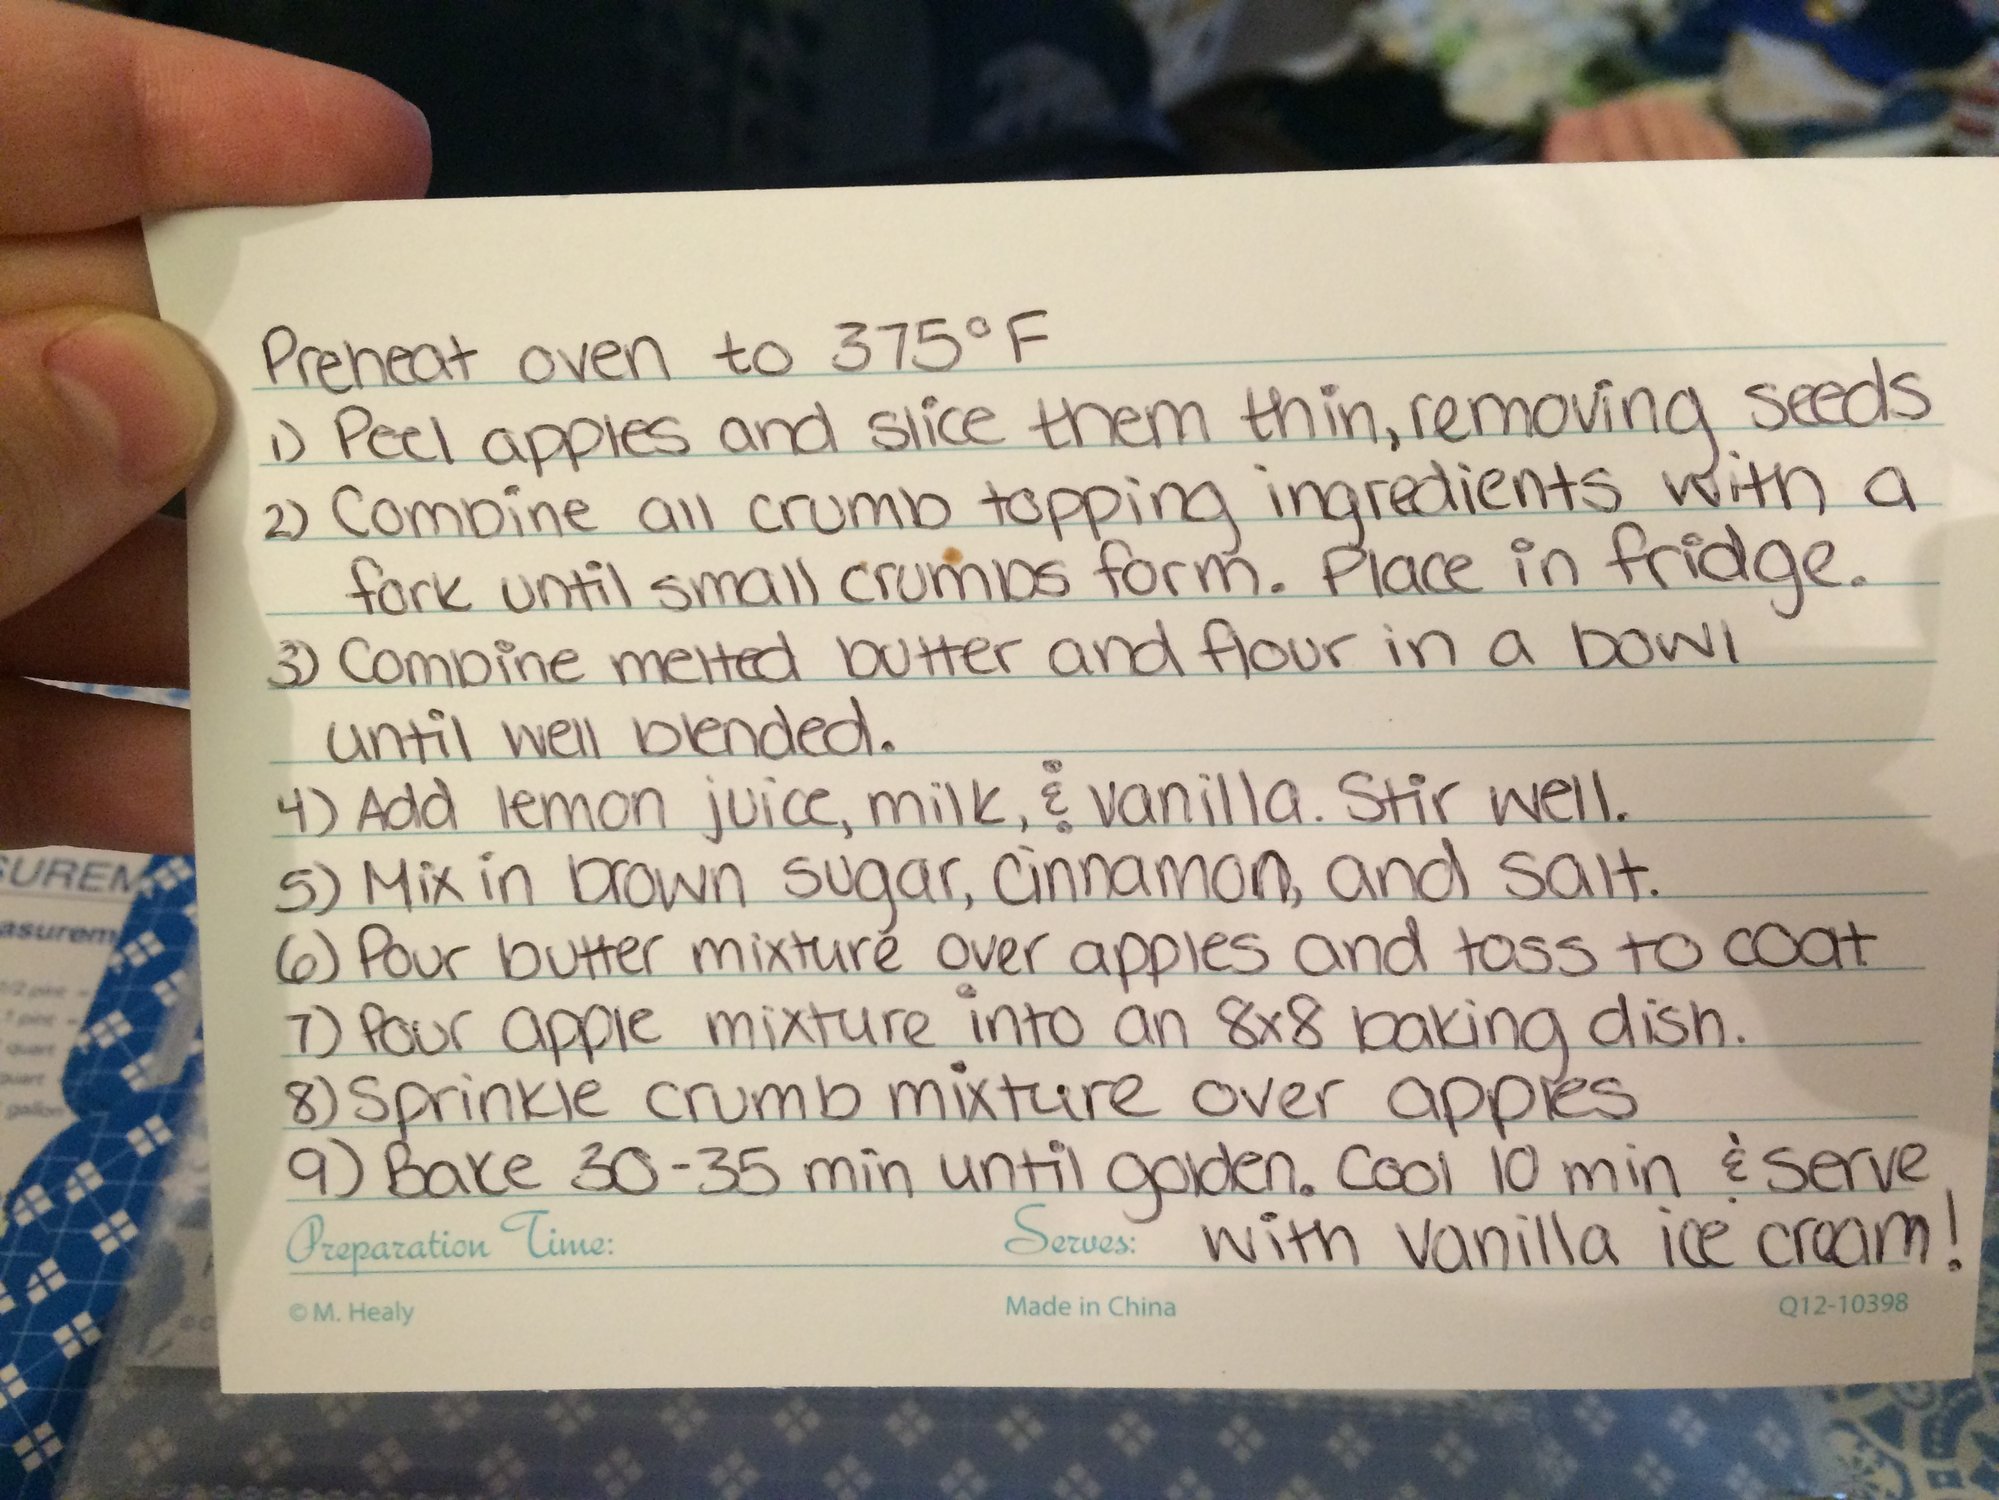 Preheat oven to 375°F
1) Peel apples and slice them thin, removing seeds
2) Combine all crumb topping ingredients with a
fork until small crumbs form. Place in fridge.
3) Combine melted butter and flour in a bowl
until well blended.
4) Add lemon juice, milk, & vanilla. Stir well.
5) Mix in brown sugar, cinnamon, and salt.
6) Pour butter mixture over apples and toss to coat
7) Pour apple mixture into an 8x8 baking dish.
8) Sprinkle crumb mixture over apples
9) Bake 30-35 min until golden. Cool 10 min & serve
Preparation Time: Serves: with vanilla ice cream!
© M. Healy Made in China Q12-10398
SUREM
asurem
1/2 pint
1 pint
quart
quart
gallon